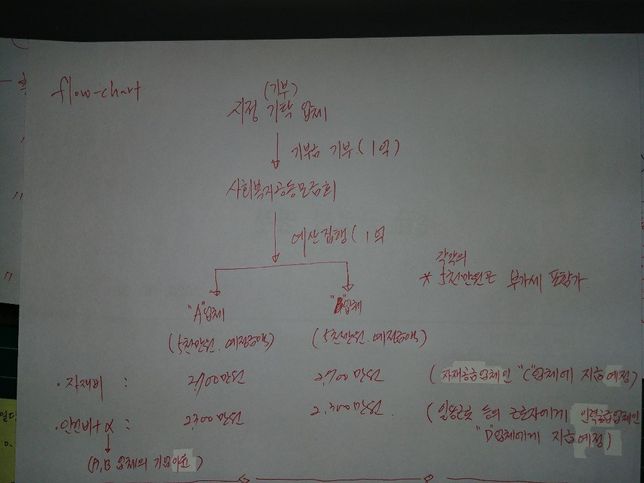 flow-chart
(기부)
지정 기탁 업체
기부금 기부 (1억)
사회복지공동모금회
예산집행 (1억
각각의
* 5천만원은 부가세 포함가
"A"업체
"B"업체
(5천만원. 예정금액)
(5천만원. 예정금액)
· 자재비 : 2,700만원 2,700만원 (자재공급업체인 "C"업체에 지급예정)
· 인건비+α : 2,300만원 2,300만원. (일용근로 등의 근로자에게 인력공급업체인
"D"업체에게 지급예정)
(A,B 업체의 기업이윤)